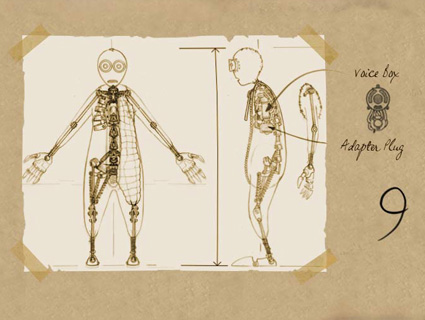 Voice Box.
Adapter Plug
9